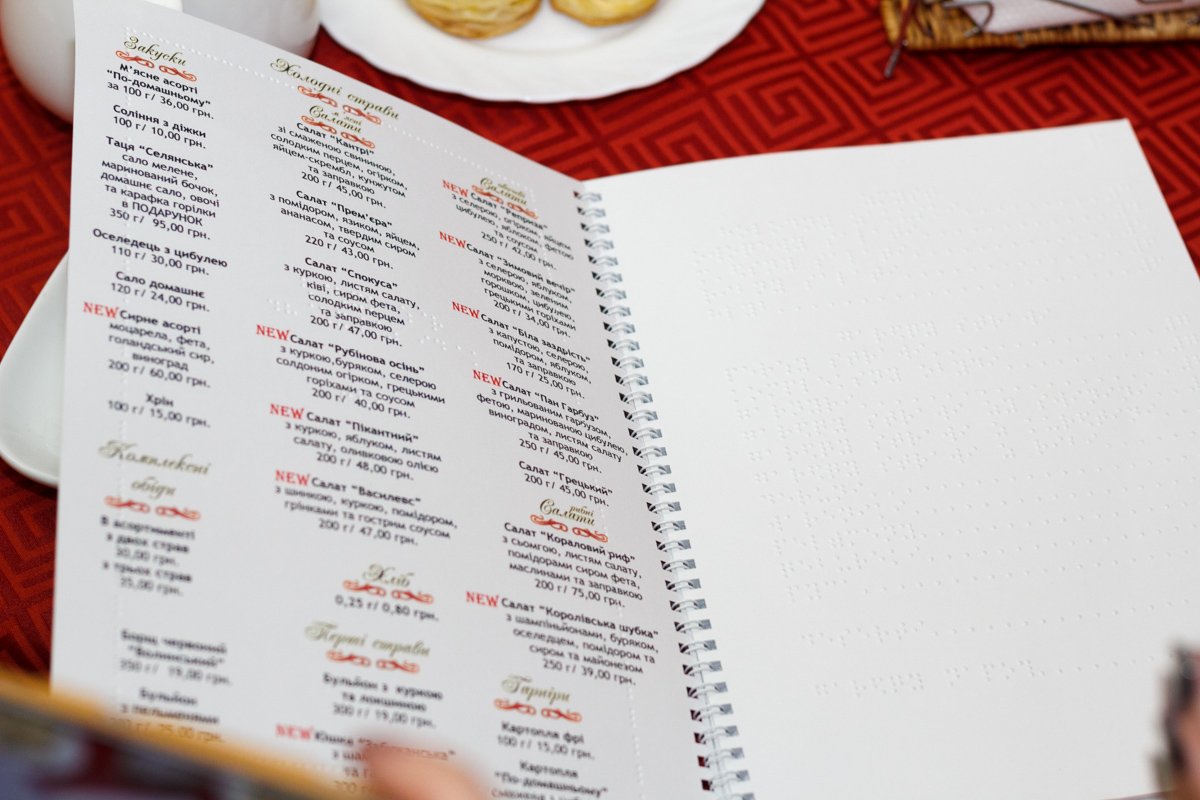 Закуски
М'ясне асорті
"По-домашньому"
за 100 г/ 36,00 грн.
Соління з діжки
100 г/ 10,00 грн.
Таця "Селянська"
сало мелене,
маринований бочок,
домашнє сало, овочі
та карафка горілки
в ПОДАРУНОК
350 г/ 95,00 грн.
Оселедець з цибулею
110 г/ 30,00 грн.
Сало домашнє
120 г/ 24,00 грн.
NEW Сирне асорті
моцарела, фета,
голандський сир,
виноград
200 г/ 60,00 грн.
Хрін
100 г/ 15,00 грн.
Комплексні
обіди
В асортименті
з двох страв
30,00 грн.
з трьох страв
35,00 грн.
Борщ червоний
"Волинський"
350 г/ 19,00 грн.
Бульйон
з пельменями
Холодні страви
м'ясні
Салати
Салат "Кантрі"
зі смаженою свининою,
солодким перцем, огірком,
яйцем-скрембл, кунжутом
та заправкою
200 г/ 45,00 грн.
Салат "Прем'єра"
з помідором, язиком, яйцем,
ананасом, твердим сиром
та соусом
220 г/ 43,00 грн.
Салат "Спокуса"
з куркою, листям салату,
ківі, сиром фета,
солодким перцем
та заправкою
200 г/ 47,00 грн.
NEW Салат "Рубінова осінь"
з куркою,буряком, селерою
солдоним огірком, грецькими
горіхами та соусом
200 г/ 40,00 грн.
NEW Салат "Пікантний"
з куркою, яблуком, листям
салату, оливковою олією
200 г/ 48,00 грн.
NEW Салат "Василевс"
з шинкою, куркою, помідором,
грінками та гострим соусом
200 г/ 47,00 грн.
Хліб
0,25 г/ 0,80 грн.
Перші страви
Бульйон з куркою
та локшиною
300 г/ 19,00 грн.
NEW Юшка
Салати
NEW Салат "Реприза"
з селерою, огірком, яйцем
цибулею, яблоком, фетою
та соусом
250 г/ 42,00 грн.
NEW Салат "Зимовий вечір"
з селерою, яблуком,
морквою, зеленим
горошком, цибулею,
грецькими горіхами
200 г/ 34,00 грн.
NEW Салат "Біла заздрість"
з капустою, селерою,
помідором, яблуком,
та заправкою
170 г/ 25,00 грн.
NEW Салат "Пан Гарбуз"
з грильованим гарбузом,
фетою, маринованою цибулею,
виноградом, листям салату
та заправкою
250 г/ 45,00 грн.
Салат "Грецький"
200 г/ 45,00 грн.
рибні
Салати
Салат "Кораловий риф"
з сьомгою, листям салату,
помідорами сиром фета,
маслинами та заправкою
200 г/ 75,00 грн.
NEW Салат "Королівська шубка"
з шампіньйонами, буряком,
оселедцем, помідором та
сиром та майонезом
250 г/ 39,00 грн.
Гарніри
Картопля фрі
100 г/ 15,00 грн.
Картопля
"По-домашньому"